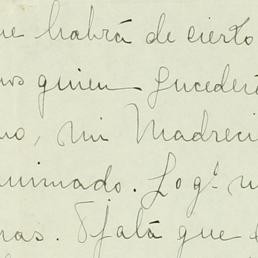 ue habrá de cierto
nos quien sucederá
no, mi Madreci
uimado. Lo q.e m
nas. Ojalá que e